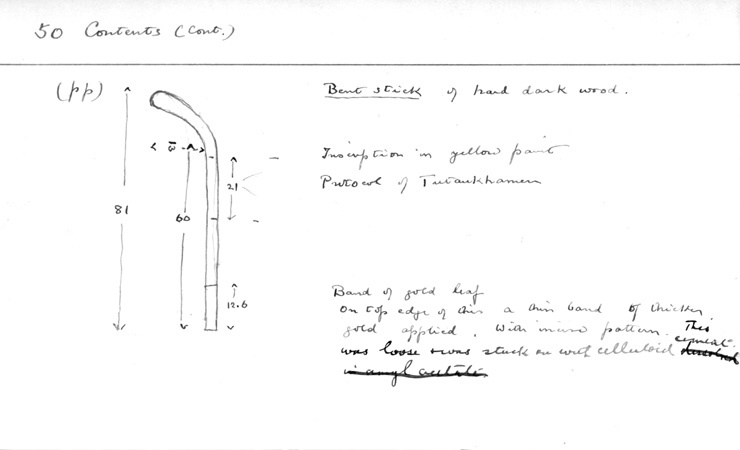 50 Contents (cont.)
(pp)
Bent stick of hard dark wood.
Inscription in yellow paint
Protocol of Tutankhamen
81
60
21
12.6
Band of gold leaf
On top edge of this a thin band of thicker
gold applied, with incised pattern. This
was loose & was stuck on with celluloid cement.
in amyl acetate.